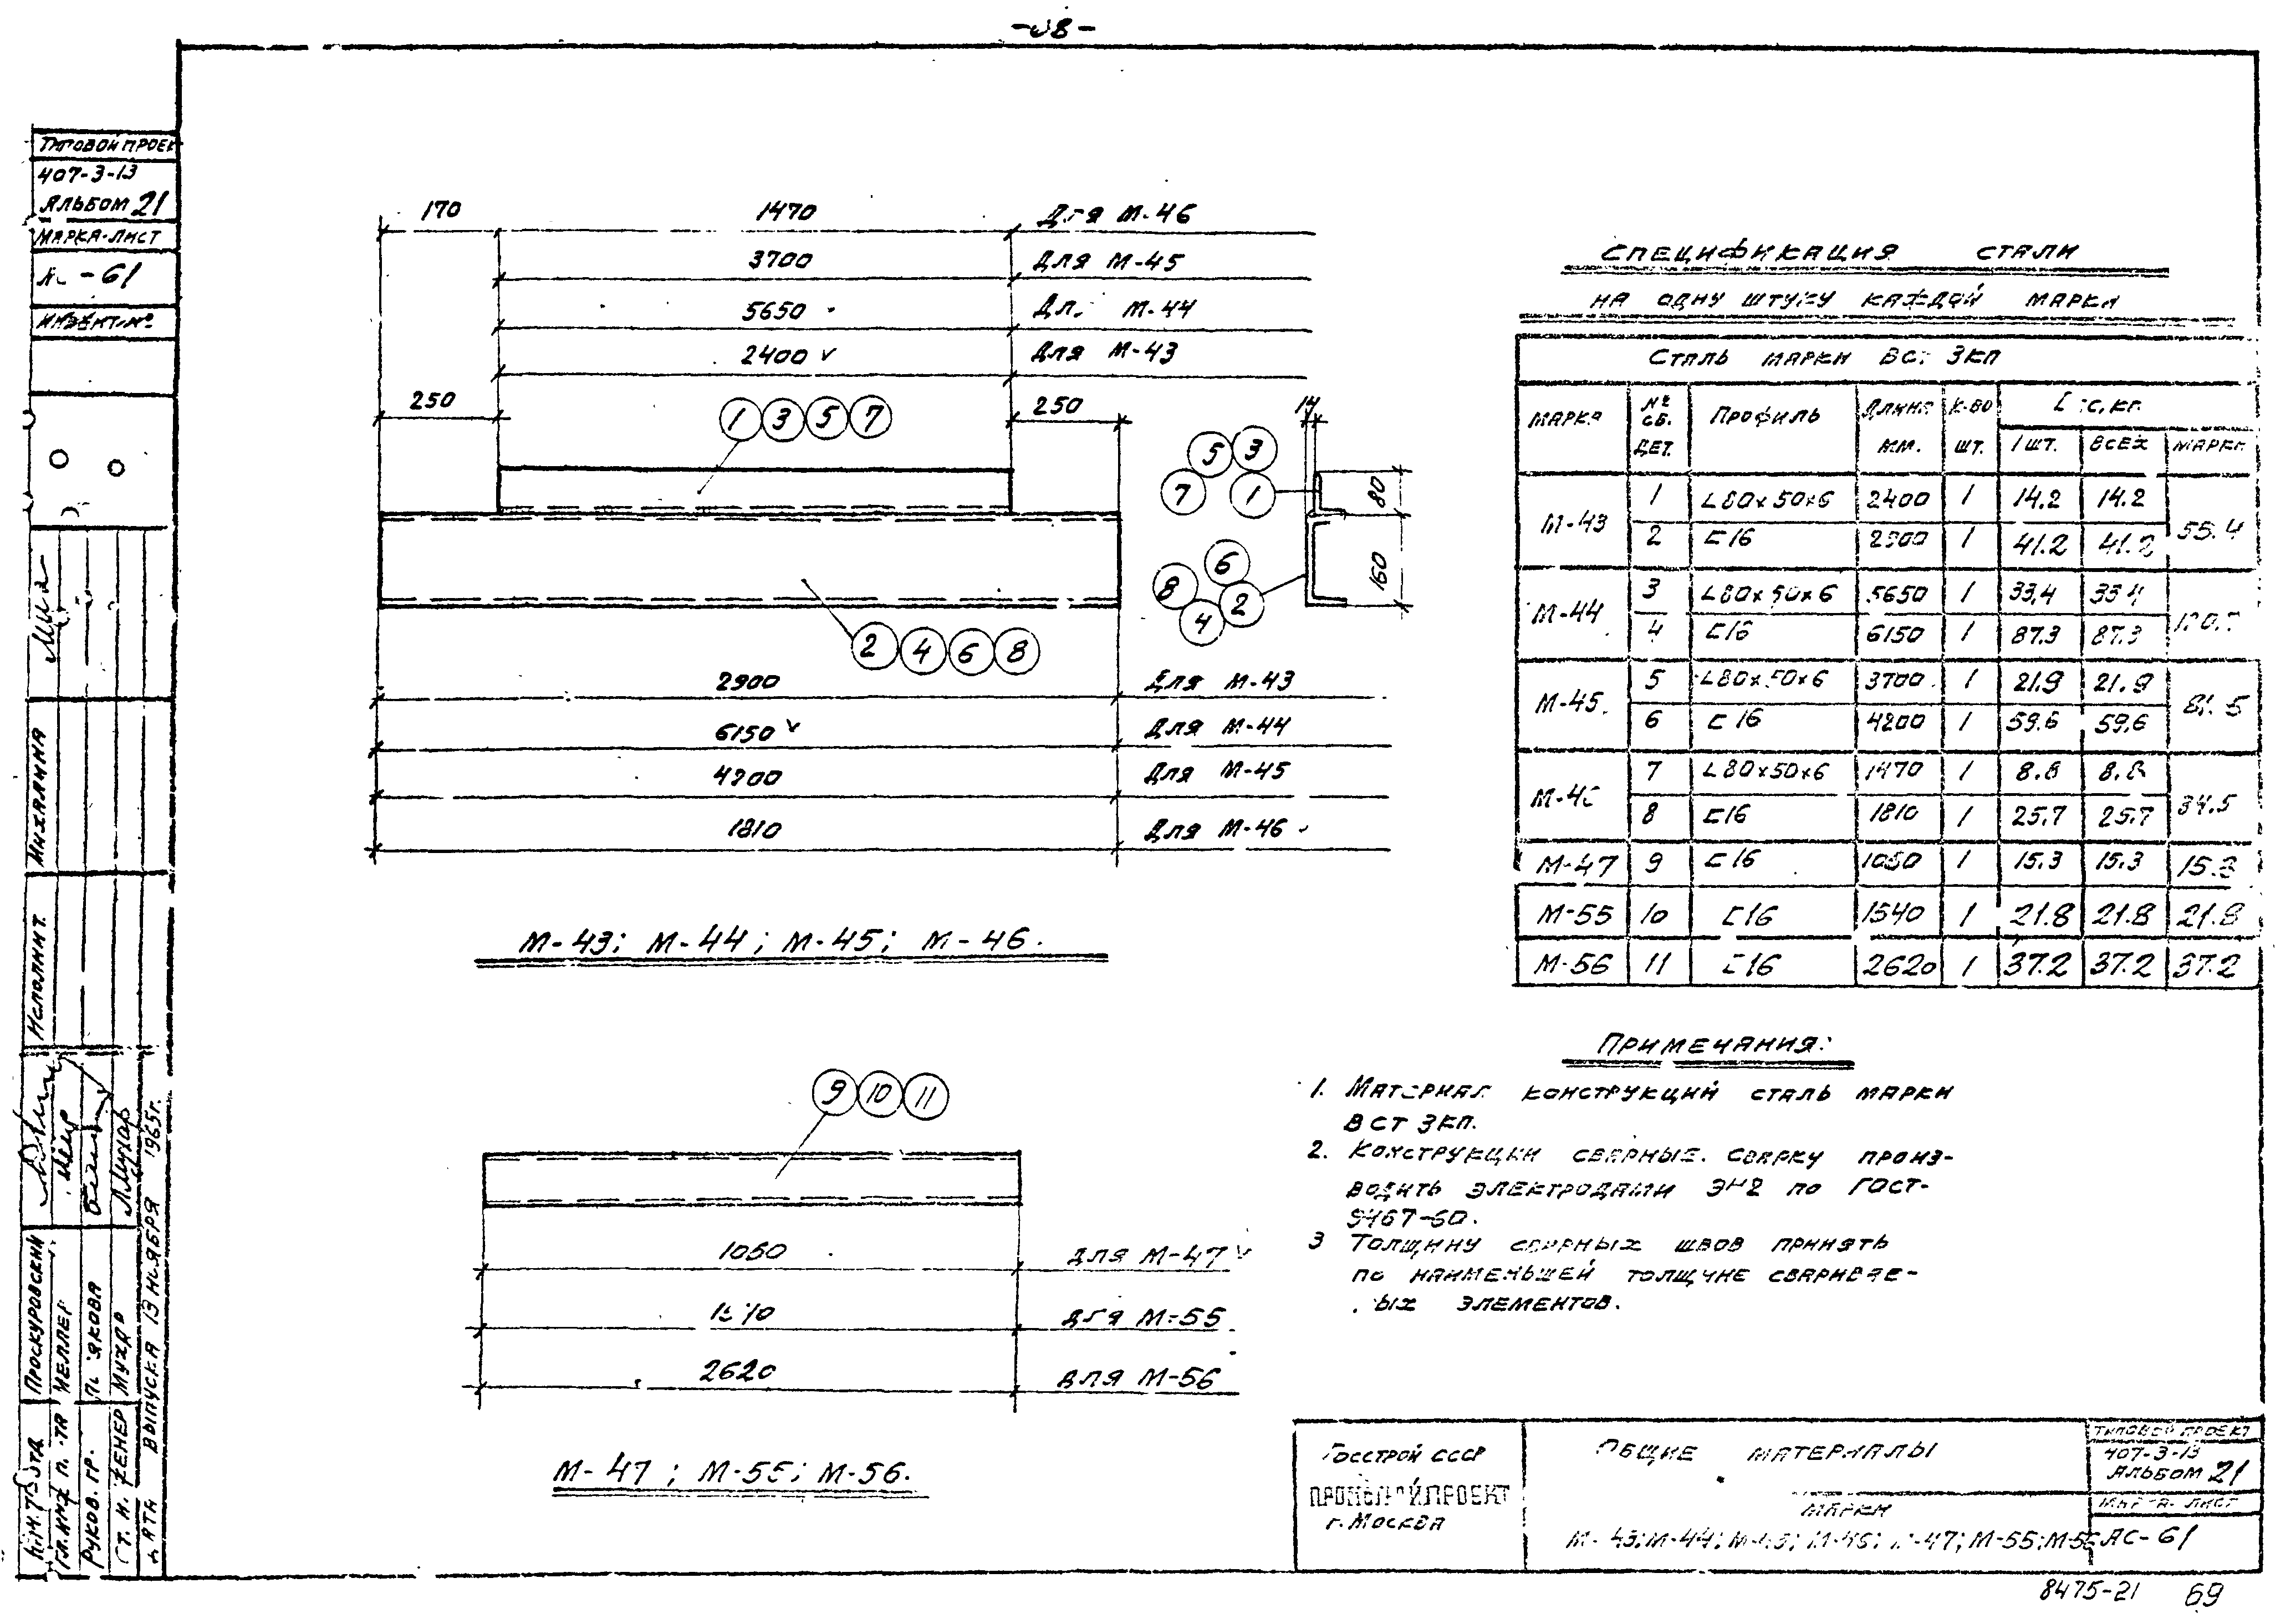 ТИПОВОЙ ПРОЕК
407-3-13
АЛЬБОМ 21
МАРКА-ЛИСТ
-61
ИНВЕНТ.№
170 1470 Для М-46
3700 Для М-45
5650 М-44
2400 Для М-43
250 250 14
1 3 5 7
5 3
7 1
80
6
8 2
4
160
2 4 6 8
2900 Для М-43
6150 Для М-44
4200 Для М-45
1810 Для М-46
М-43; М-44; М-45; М-46.
9 10 11
для М-47
для М-55
2620 для М-56
М-47; М-55; М-56.
СПЕЦИФИКАЦИЯ СТАЛИ
НА ОДНУ ШТУКУ КАЖДОЙ МАРКИ
СТАЛЬ МАРКИ ВСТ 3КП
МАРКА № СБ. ДЕТ. ПРОФИЛЬ ДЛИНА ММ. К-ВО ШТ. 1 ШТ. ВСЕХ МАРКИ
М-43 1 L80×50×6 2400 1 14.2 14.2 55.4
2 [16 2900 1 41.2 41.2
М-44 3 L80×50×6 5650 1 33,4 33,4
4 [16 6150 1 87.3 87.3
М-45 5 L80×50×6 3700 1 21.9 21.9 81.5
6 [16 4200 1 59.6 59.6
7 L80×50×6 1470 1 8.8 8.8 34.5
8 [16 1810 1 25.7 25.7
М-47 9 [16 1 15.3 15.3 15.3
М-55 10 [16 1540 1 21.8 21.8 21.8
М-56 11 [16 2620 1 37.2 37.2 37.2
ПРИМЕЧАНИЯ:
1. МАТЕРИАЛ КОНСТРУКЦИЙ СТАЛЬ МАРКИ
ВСТ 3КП.
2. КОНСТРУКЦИИ СВАРНЫЕ. СВАРКУ ПРОИЗ-
ВОДИТЬ ЭЛЕКТРОДАМИ ПО ГОСТ-
9467-60.
3 ТОЛЩИНУ СВАРНЫХ ШВОВ ПРИНЯТЬ
ПО НАИМЕНЬШЕЙ ТОЛЩИНЕ СВАРИВАЕ-
ЫХ ЭЛЕМЕНТОВ.
ГОССТРОЙ СССР
ПРОМСТРОЙПРОЕКТ
г. МОСКВА
ОБЩИЕ МАТЕРИАЛЫ
МАРКИ
М-43; М-44; М-45; М-46; М-47; М-55; М-56
ТИПОВОЙ ПРОЕКТ
407-3-13
АЛЬБОМ 21
МАРКА-ЛИСТ
АС-61
8475-21 69
ИСПОЛНИТ. МИХАЛИНА
ПРОСКУРОВСКИЙ
МЕЛЛЕР
РУКОВ. ГР.
СТ. И
ДАТА ВЫПУСКА 13 НОЯБРЯ 1965г.